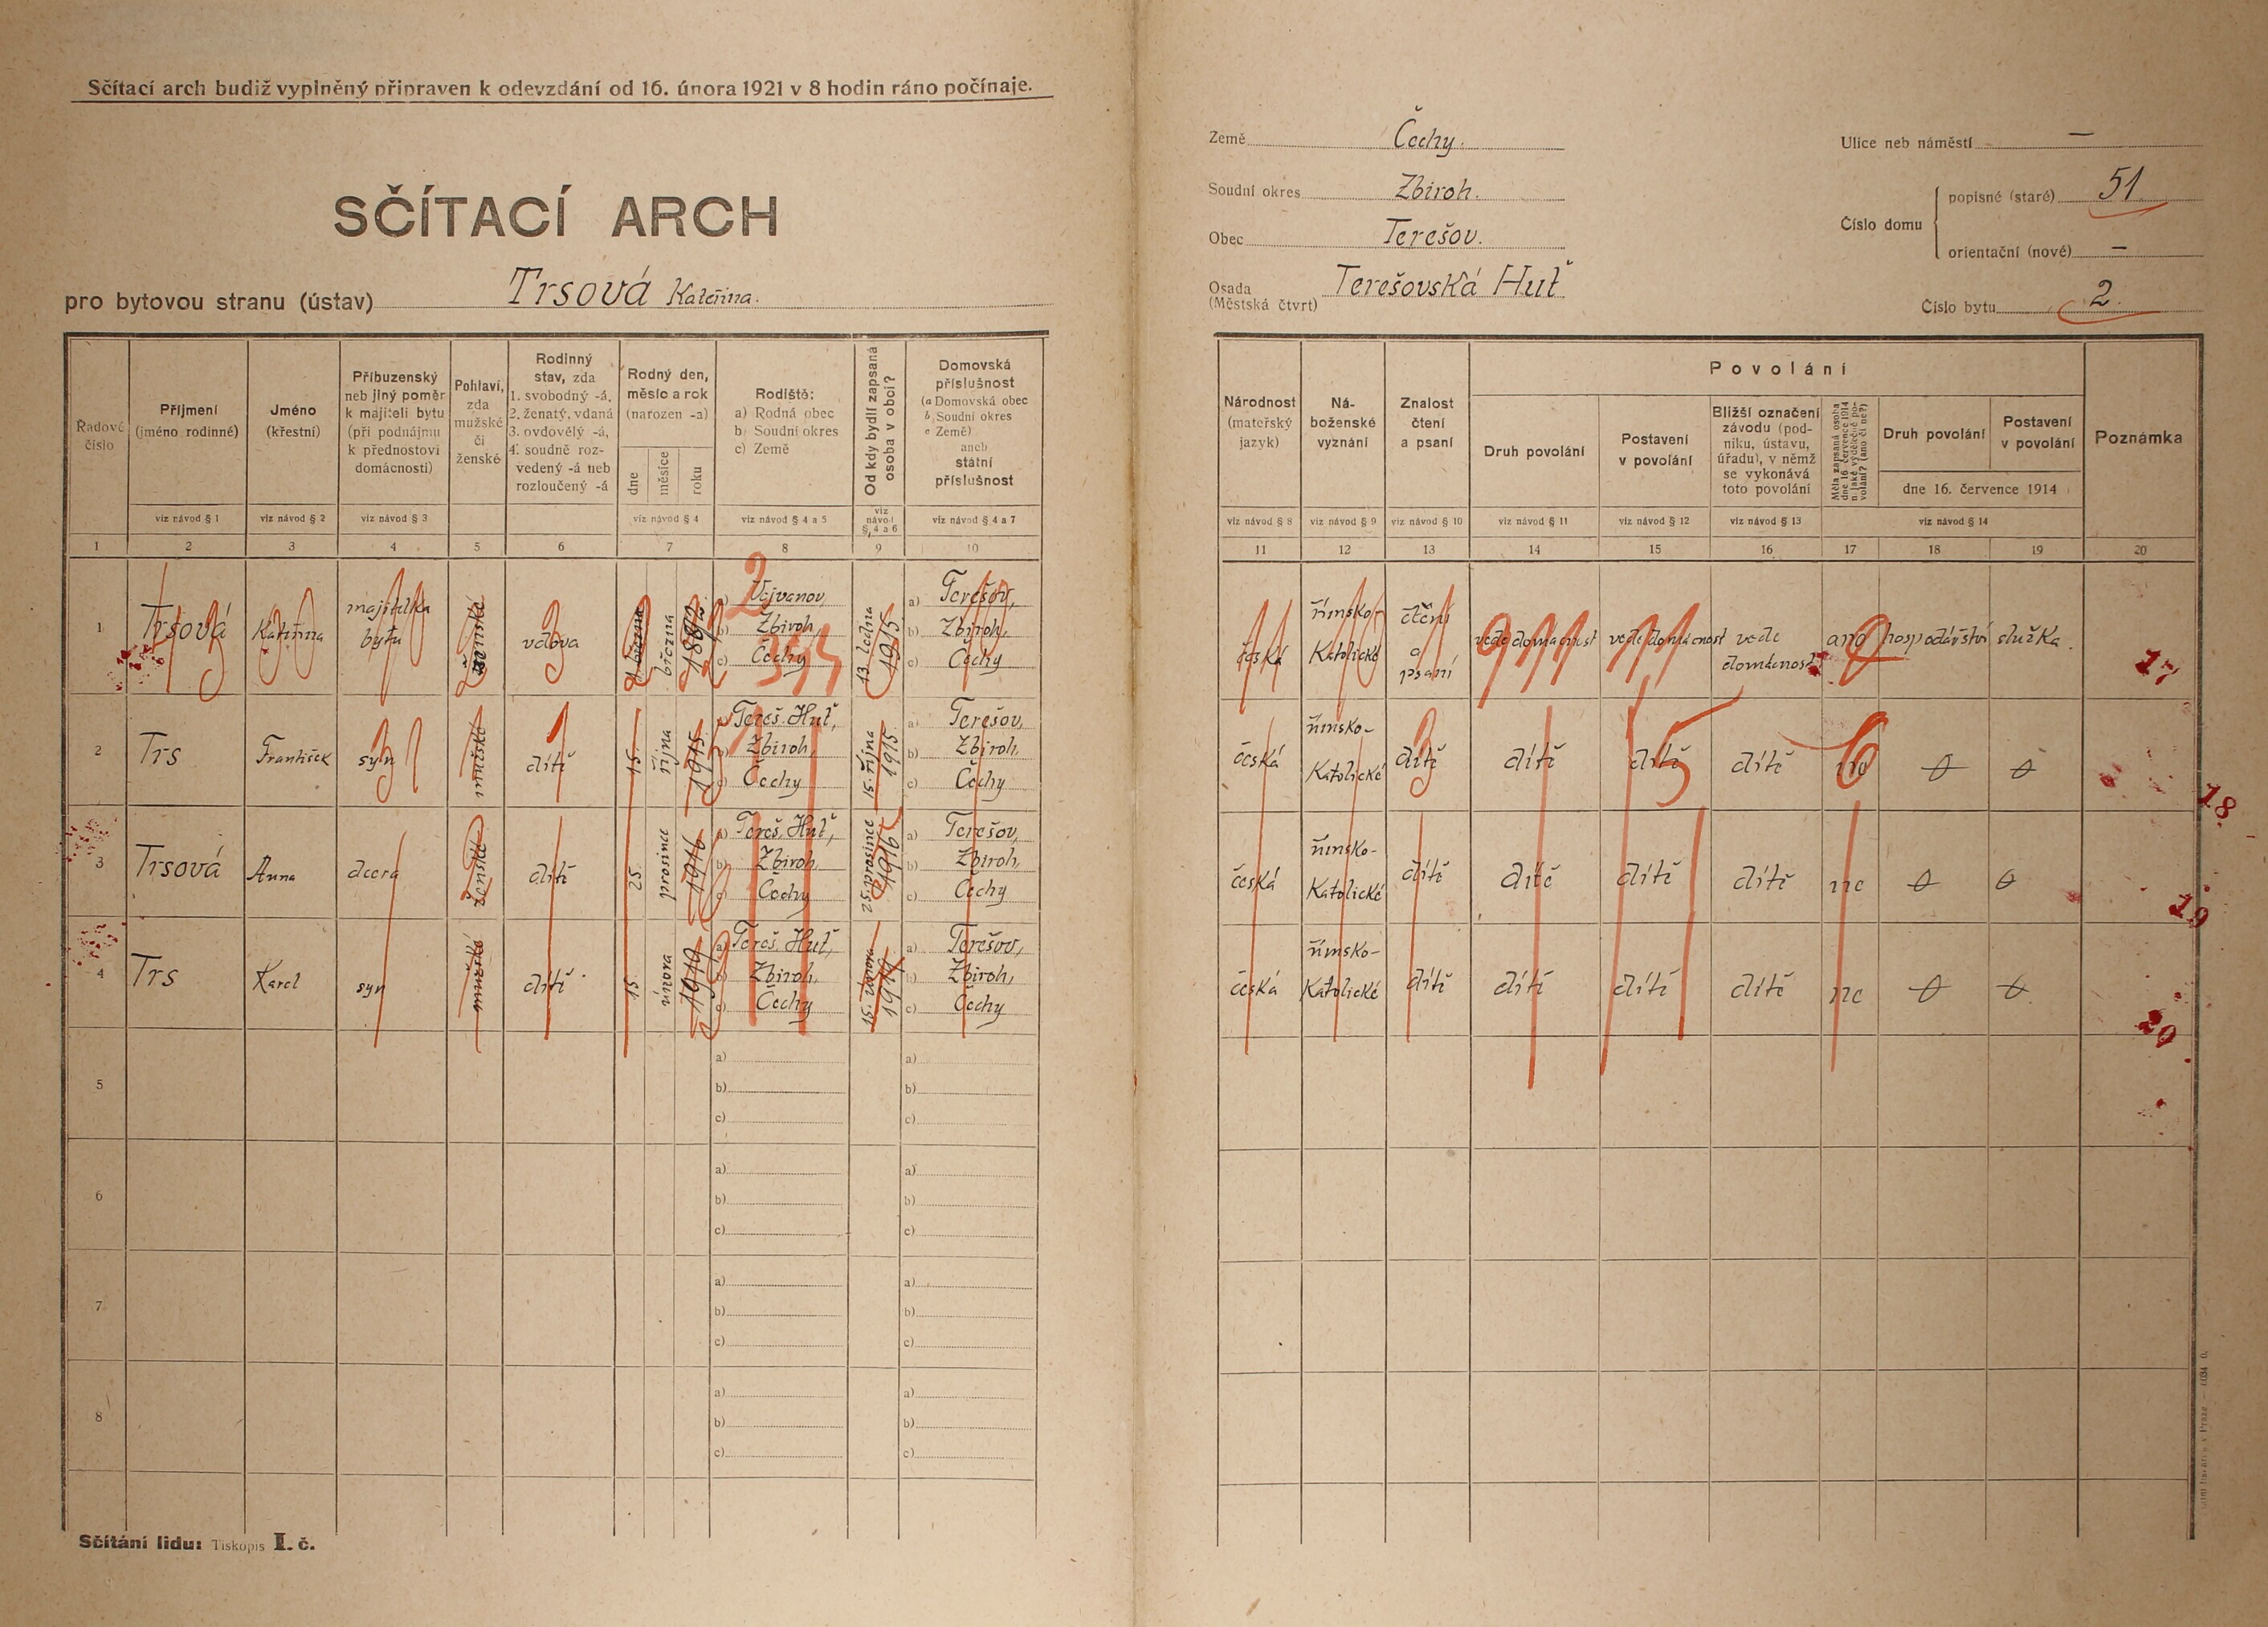 Sčítací arch budiž vyplněný připraven k odevzdání od 16. února 1921 v 8 hodin ráno počínaje.
SČÍTACÍ ARCH
pro bytovou stranu (ústav) Trsová Kateřina.
Země Čechy.
Soudní okres Zbiroh.
Obec Terešov.
Osada (Městská čtvrt) Terešovská Huť
Ulice neb náměstí —
Číslo domu
popisné (staré) 51
orientační (nové) —
Číslo bytu 2.
Řadové číslo
Příjmení (jméno rodinné)
Jméno (křestní)
Příbuzenský neb jiný poměr k majiteli bytu (při podnájmu k přednostovi domácnosti)
Pohlaví, zda mužské či ženské
Rodinný stav, zda 1. svobodný -á, 2. ženatý, vdaná 3. ovdovělý -á, 4. soudně rozvedený -á neb rozloučený -á
Rodný den, měsíc a rok (narozen -a)
dne měsíce roku
Rodiště: a) Rodná obec b) Soudní okres c) Země
Od kdy bydlí zapsaná osoba v obci?
Domovská příslušnost (a Domovská obec b Soudní okres c Země) aneb státní příslušnost
Národnost (mateřský jazyk)
Náboženské vyznání
Znalost čtení a psaní
Povolání
Druh povolání
Postavení v povolání
Bližší označení závodu (podniku, ústavu, úřadu), v němž se vykonává toto povolání
Měla zapsaná osoba dne 16. července 1914 nějaké výdělečné povolání? (ano či ne?)
Druh povolání
Postavení v povolání
dne 16. července 1914
Poznámka
viz návod § 1 viz návod § 2 viz návod § 3 viz návod § 4 viz návod § 4 a 5 viz návod § 4 a 6 viz návod § 4 a 7 viz návod § 8 viz návod § 9 viz návod § 10 viz návod § 11 viz návod § 12 viz návod § 13 viz návod § 14
1 2 3 4 5 6 7 8 9 10 11 12 13 14 15 16 17 18 19 20
1 Trsová Kateřina majitelka bytu ženské vdova března 1889 a) Vejvanov, b) Zbiroh, c) Čechy 13. ledna 1915 a) Terešov, b) Zbiroh, c) Čechy česká římsko-Katolické čtení a psaní vede domácnost vede domácnost vede domácnost ano hospodářství služka 17
2 Trs František syn mužské dítě 15. října 1915 a) Tereš. Huť, b) Zbiroh, c) Čechy 15. října 1915 a) Terešov, b) Zbiroh, c) Čechy česká římsko-Katolické dítě dítě dítě dítě ne 0 0 18
3 Trsová Anna dcera ženské dítě 25. prosince 1916 a) Tereš. Huť, b) Zbiroh, c) Čechy 25. prosince 1916 a) Terešov, b) Zbiroh, c) Čechy česká římsko-Katolické dítě dítě dítě dítě ne 0 0 19
4 Trs Karel syn mužské dítě 15. února 1919 a) Tereš. Huť, b) Zbiroh, c) Čechy 15. února 1919 a) Terešov, b) Zbiroh, c) Čechy česká římsko-Katolické dítě dítě dítě dítě ne 0 0 20
5 a) b) c) a) b) c)
6 a) b) c) a) b) c)
7 a) b) c) a) b) c)
8 a) b) c) a) b) c)
Sčítání lidu: Tiskopis I. č.